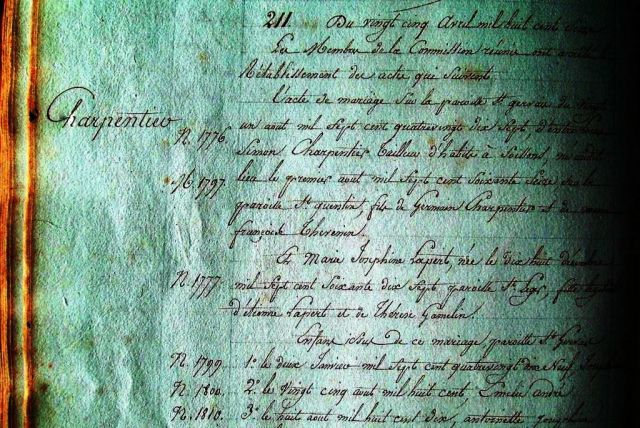 211. Du vingt cinq Avril mil huit cent
Les Membres de la Commission réunis ont arrêté
Rétablissement des actes qui suivent
L'acte de mariage sur la paroisse St gervais du vingt
Charpentier
N. 1776. un aout mil sept cent quatrevingt dix sept d'entre
Simon Charpentier tailleur d'habits à Soissons,
M. 1797. lieu le premier aout mil sept cent soixante seize sur la
paroisse St quentin, fils de Germain Charpentier et de
françoise Thevenin.
Et Marie Josephine Lapert, née le dix huit décembre
N. 1777. mil sept cent soixante dix sept paroisse St fille
d'étienne Lapert et de Thérèse Gamelin.
Enfans issus de ce mariage, paroisse St Gervais
N. 1799. 1° le deux Janvier mil sept cent quatrevingt dix Neuf
N. 1800. 2° le vingt cinq aout mil huit cent Emélie
N. 1810. 3° le huit aout mil huit cent dix, antoinette